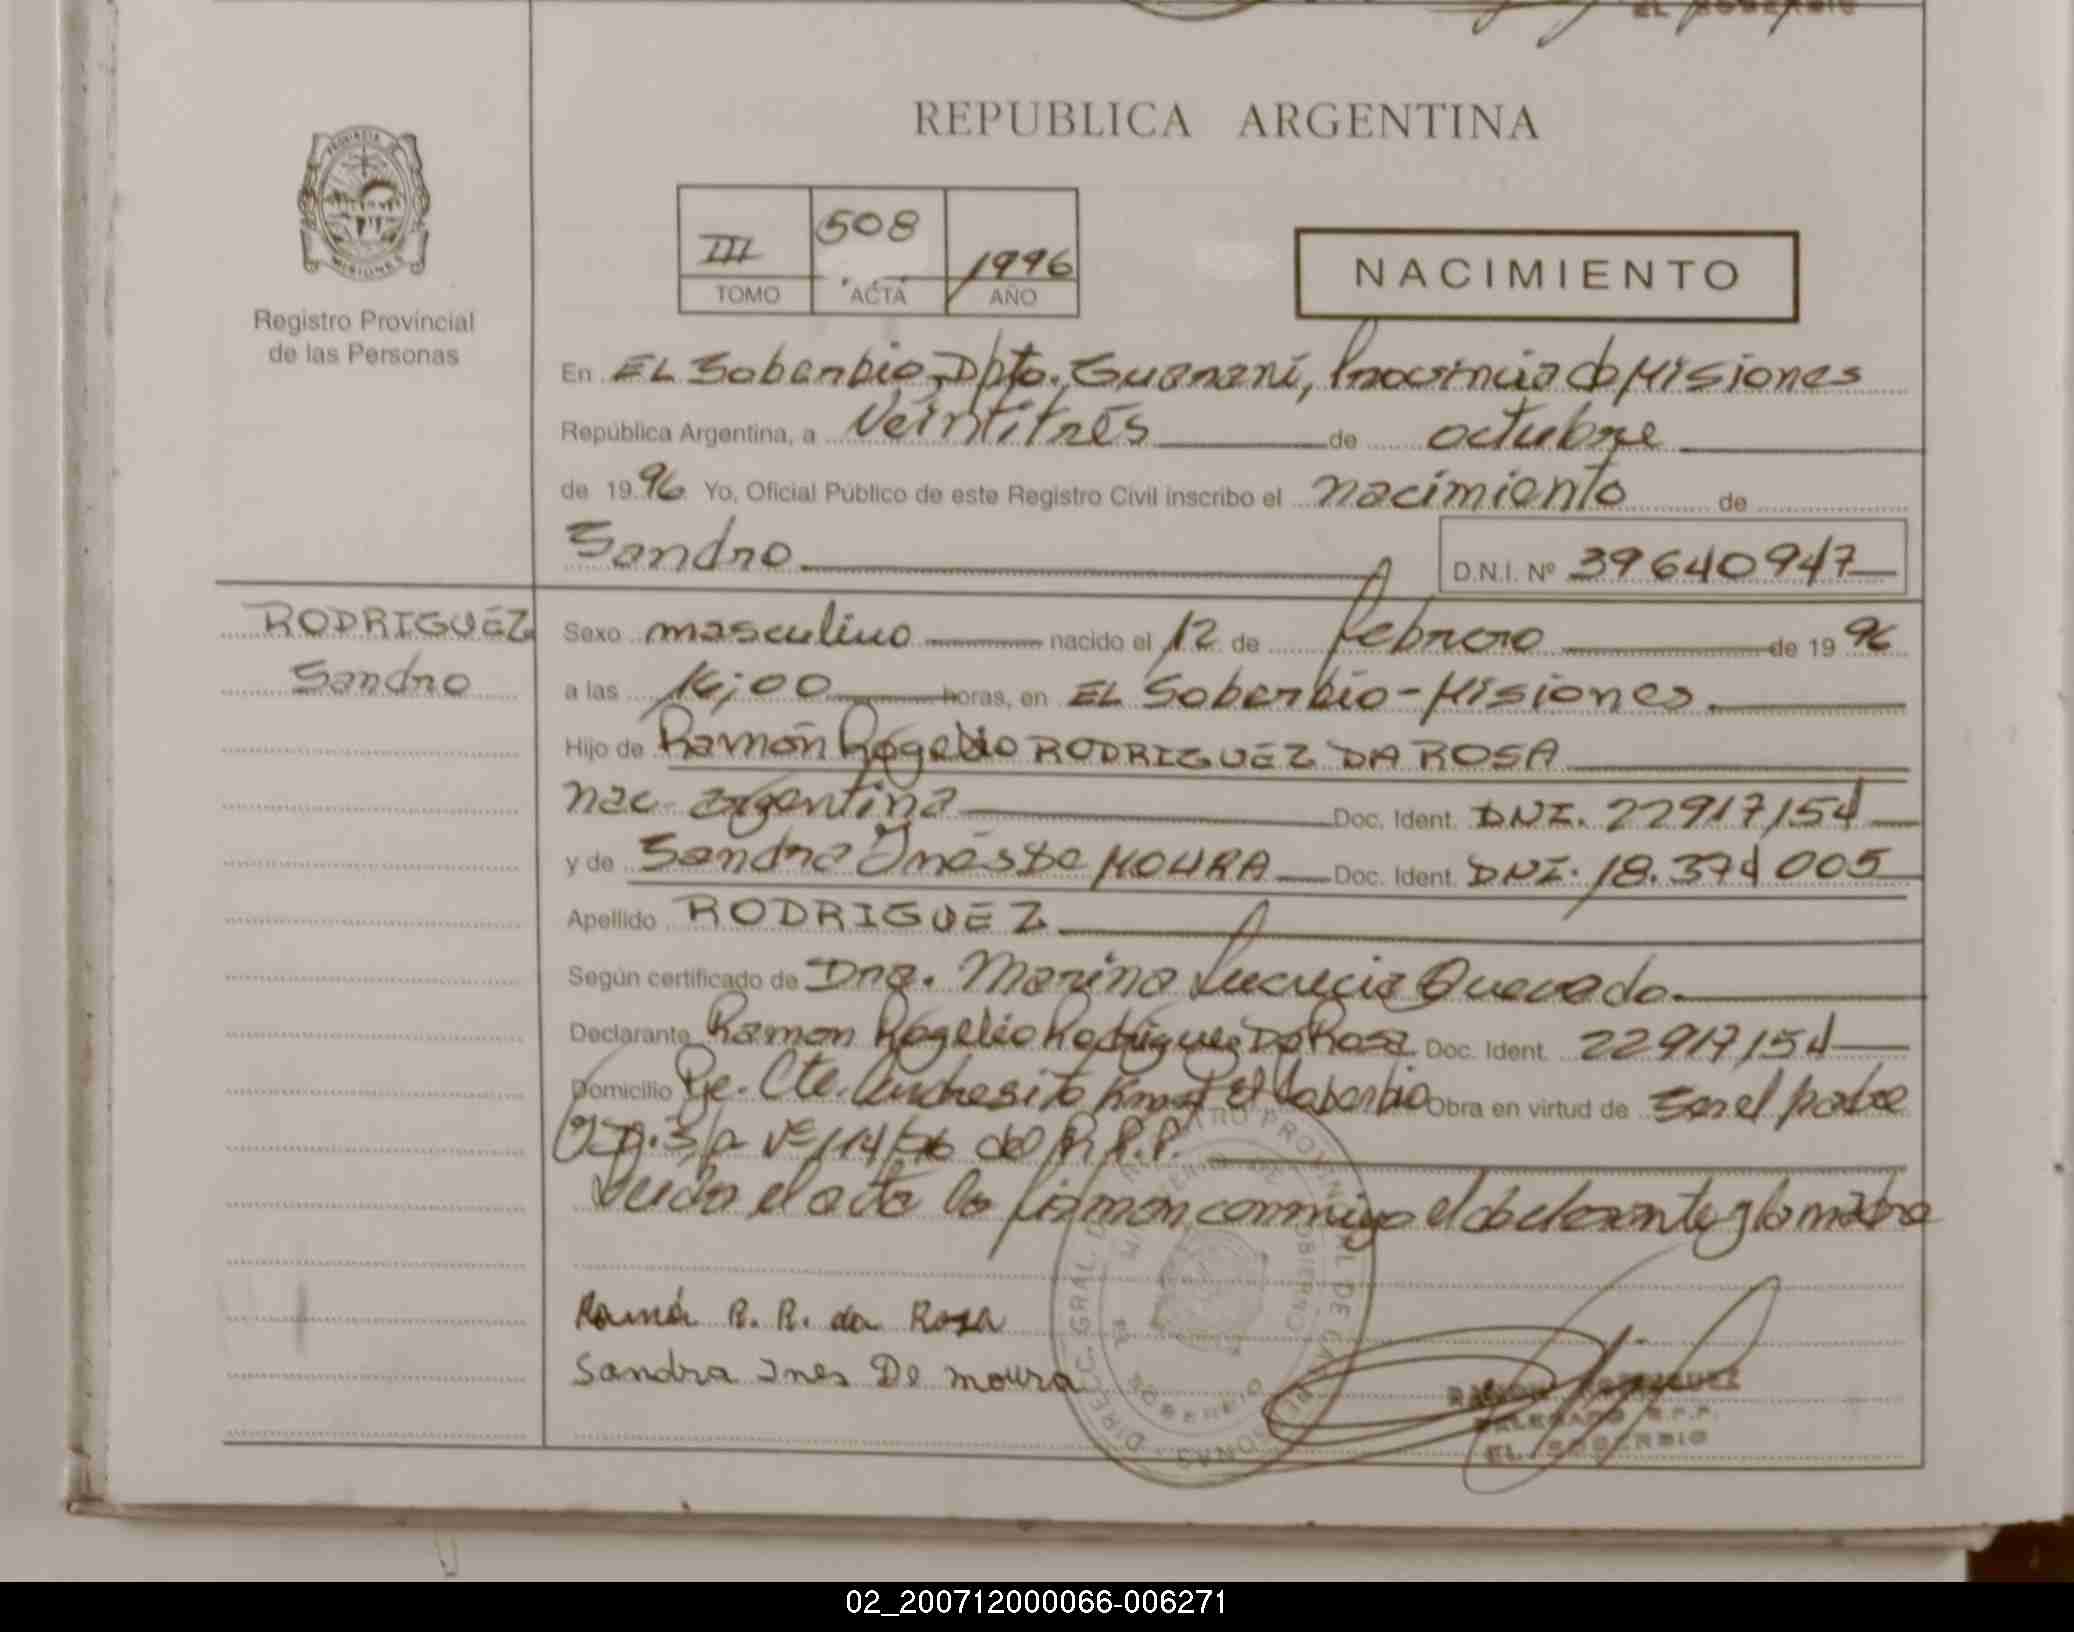 EL SOBERBIO
REPUBLICA ARGENTINA
PROVINCIA DE
MISIONES
Registro Provincial
de las Personas
III 508 1996
TOMO ACTA AÑO
NACIMIENTO
En EL Soberbio, Dpto. Guaraní, Provincia de Misiones
República Argentina, a veintitrés de octubre
de 1996 Yo, Oficial Público de este Registro Civil inscribo el nacimiento de
Sandro D.N.I. Nº 39640947
RODRIGUEZ
Sandro
Sexo masculino nacido el 12 de febrero de 1996
a las 16:00 horas, en EL Soberbio-Misiones.
Hijo de Ramón Rogelio RODRIGUEZ DA ROSA
nac. argentina Doc. Ident. DNI. 22917154
y de Sandra Inés De MOURA Doc. Ident. DNI. 18.374005
Apellido RODRIGUEZ
Según certificado de Dra. Marina Lucrecia Quevedo.
Declarante Ramon Rogelio Rodriguez Da Rosa Doc. Ident. 22917154
Domicilio Pje. Cte. Andresito El Soberbio Obra en virtud de Ser el padre
del R.P.P.
Leida el acta la firman conmigo el declarante y la madre
Ramón R. R. da Rosa
Sandra Ines De moura
DIRECC. GRAL. DEL REGISTRO PROVINCIAL DE LAS PERSONAS
MINISTERIO DE GOBIERNO
EL SOBERBIO
RAMON RODRIGUEZ
DELEGADO R.P.P.
EL SOBERBIO
02_200712000066-006271